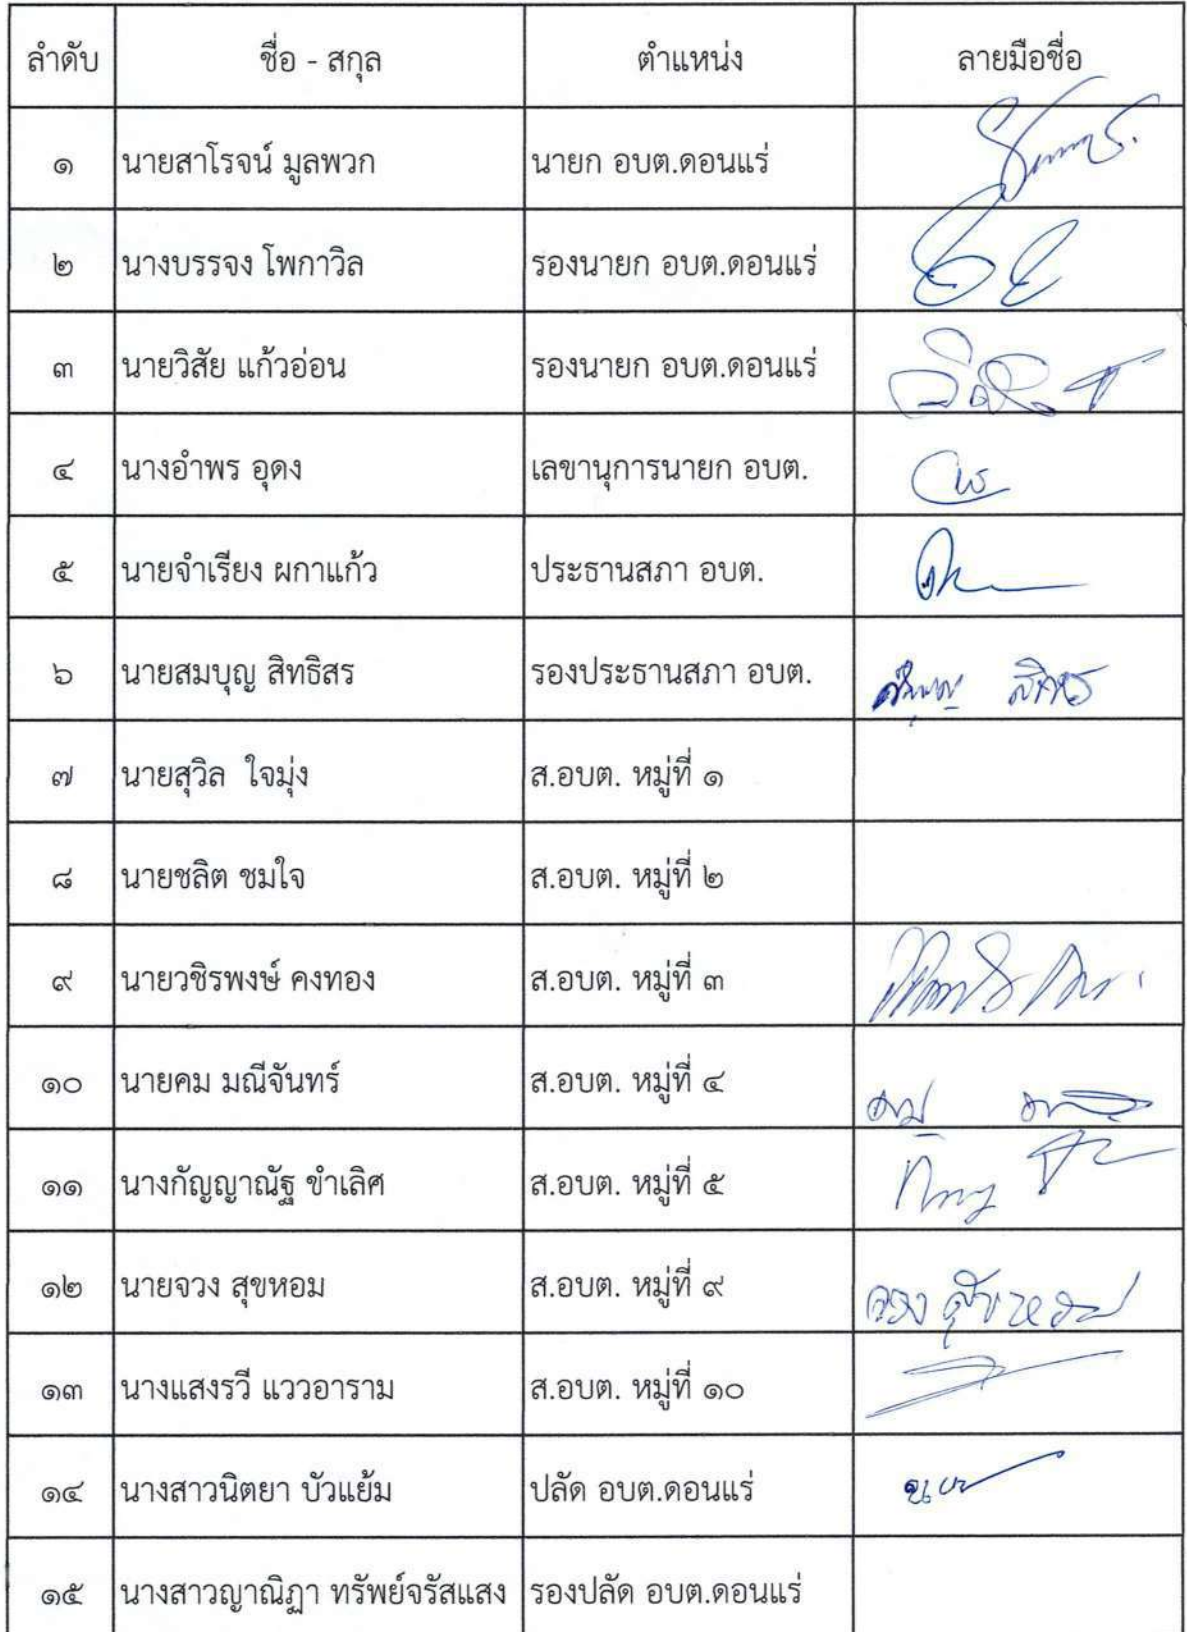 ลำดับ ชื่อ - สกุล ตำแหน่ง ลายมือชื่อ
๑ นายสาโรจน์ มูลพวก นายก อบต.ดอนแร่
๒ นางบรรจง โพกาวิล รองนายก อบต.ดอนแร่
๓ นายวิสัย แก้วอ่อน รองนายก อบต.ดอนแร่
๔ นางอำพร อุดง เลขานุการนายก อบต.
๕ นายจำเรียง ผกาแก้ว ประธานสภา อบต.
๖ นายสมบุญ สิทธิสร รองประธานสภา อบต.
๗ นายสุวิล ใจมุ่ง ส.อบต. หมู่ที่ ๑
๘ นายชลิต ชมใจ ส.อบต. หมู่ที่ ๒
๙ นายวชิรพงษ์ คงทอง ส.อบต. หมู่ที่ ๓
๑๐ นายคม มณีจันทร์ ส.อบต. หมู่ที่ ๔
๑๑ นางกัญญาณัฐ ขำเลิศ ส.อบต. หมู่ที่ ๕
๑๒ นายจวง สุขหอม ส.อบต. หมู่ที่ ๙ จวง สุขหอม
๑๓ นางแสงรวี แววอาราม ส.อบต. หมู่ที่ ๑๐
๑๔ นางสาวนิตยา บัวแย้ม ปลัด อบต.ดอนแร่
๑๕ นางสาวญาณิฏา ทรัพย์จรัสแสง รองปลัด อบต.ดอนแร่